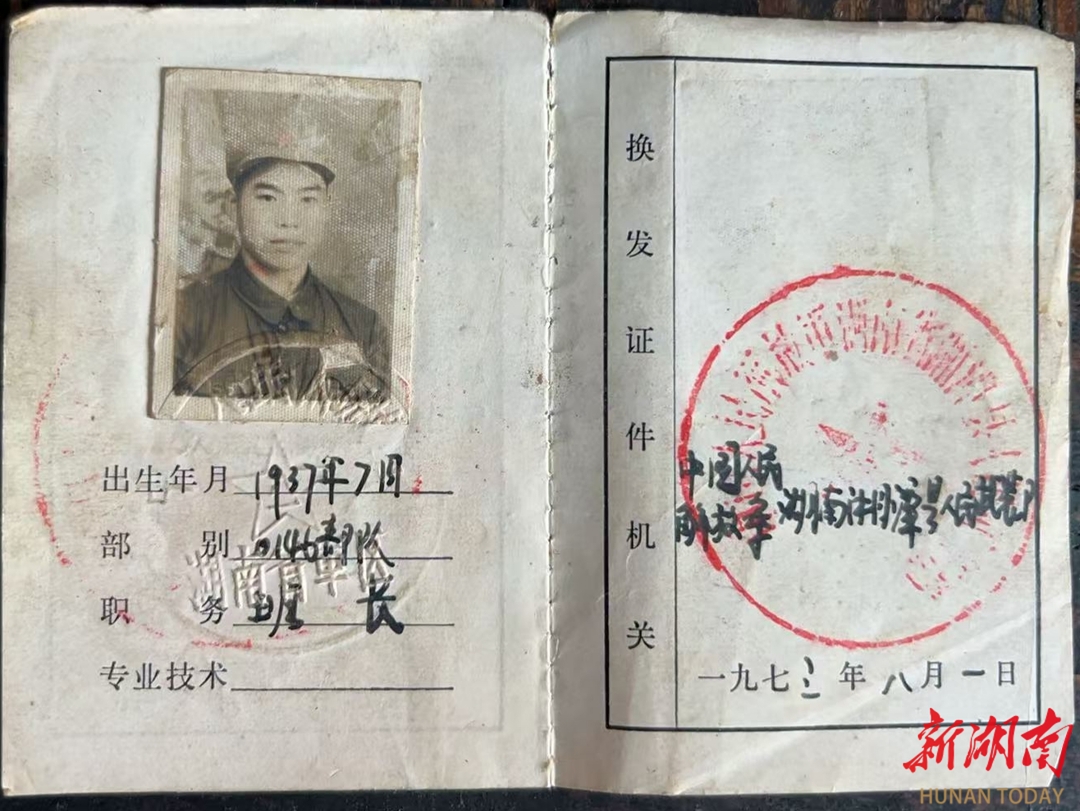 出生年月 1937年7月
部别 0146部队
职务 班长
专业技术
湖南省军区
换发证件机关
中国人民
解放军湖南
人民武装部
一九七三年八月一日
新湖南
HUNAN TODAY